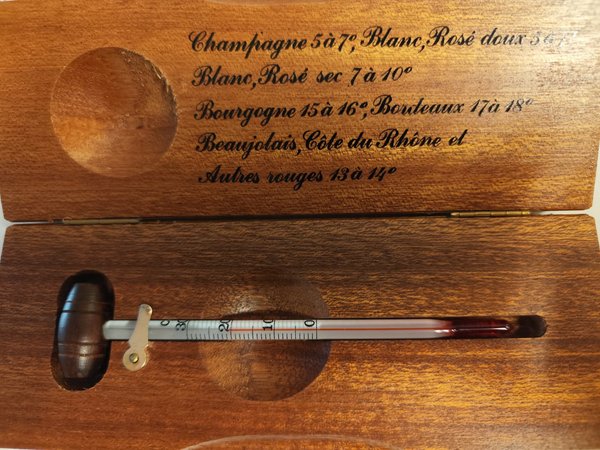 Champagne 5 à 7°, Blanc, Rosé doux 5 à 7°
Blanc, Rosé sec 7 à 10°
Bourgogne 15 à 16°, Bordeaux 17 à 18°
Beaujolais, Côte du Rhône et
Autres rouges 13 à 14°
C 30 20 10 0